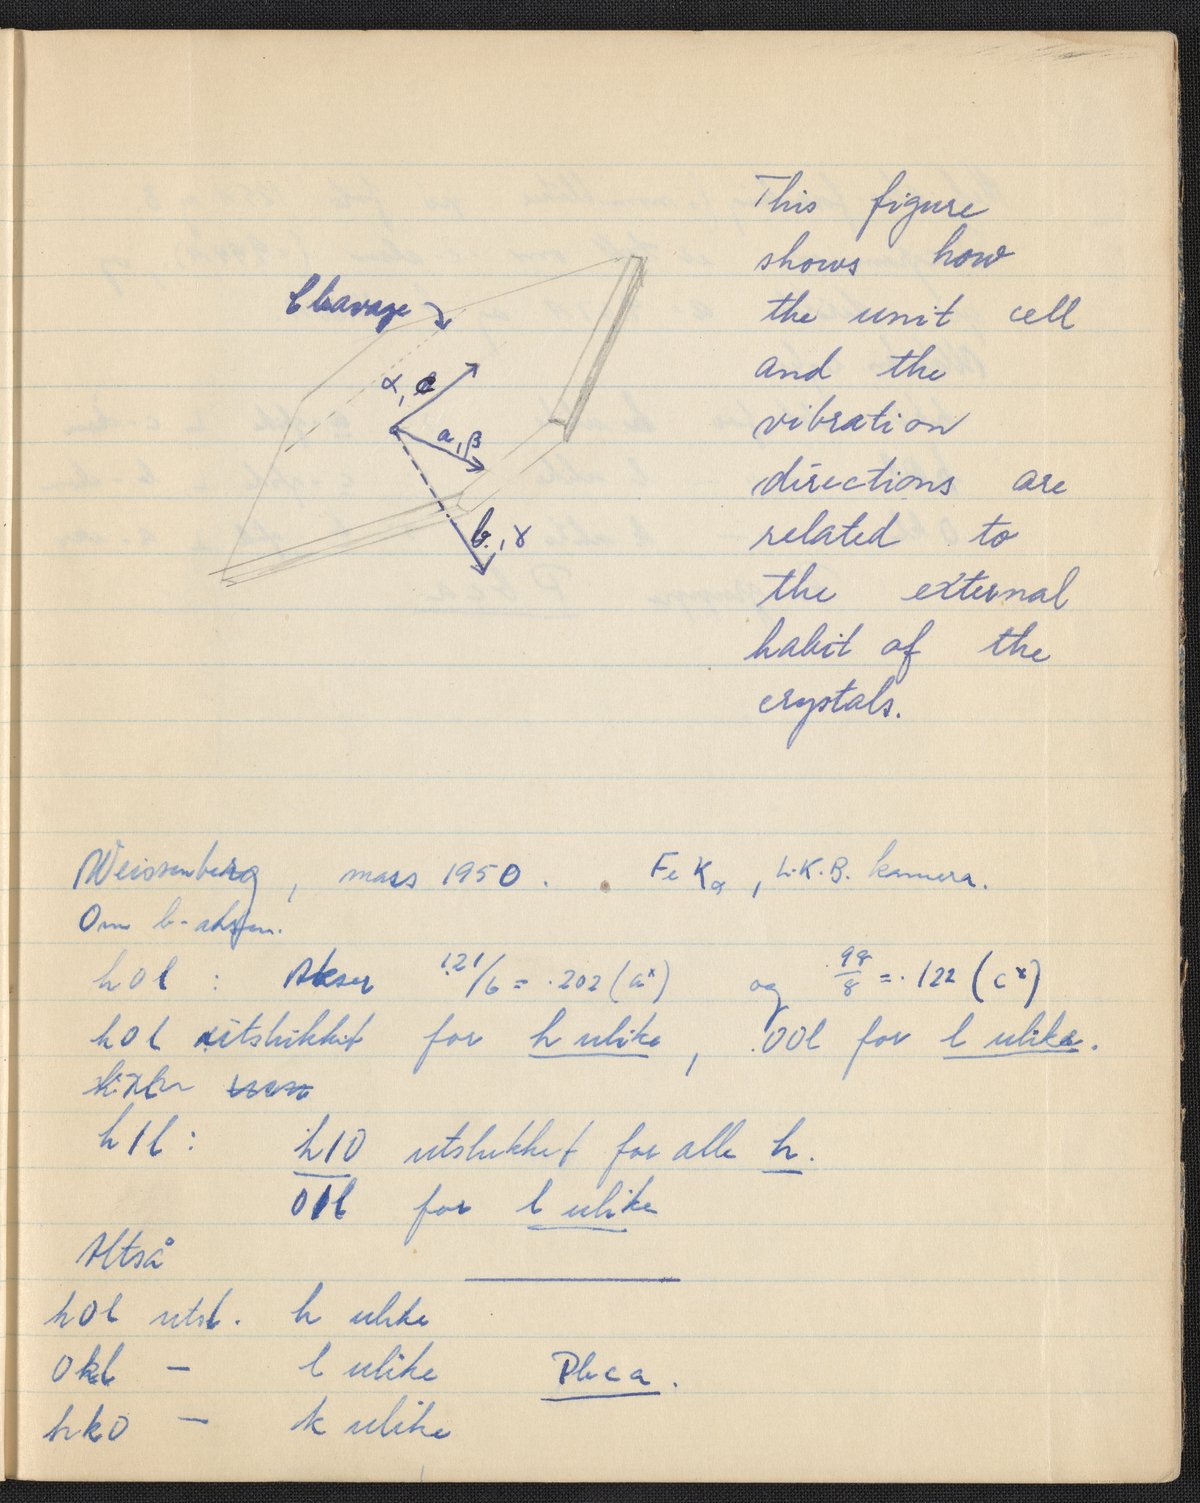 This figure
shows how
the unit cell
and the
vibration
directions are
related to
the external
habit of the
crystals.
Cleavage
α, c
a, β
b, γ
Weissenberg, mars 1950. Fe Kα, L.K.B. kamera.
Om b-aksen.
h0l : Akser 1.21/6 = .202 (a*) og .98/8 = .122 (c*)
h0l utslukket for h ulike, 00l for l ulike.
h1l : h10 utslukket for alle h.
01l for l ulike
Altså
h0l utsl. h ulike
0kl — l ulike Pbca.
hk0 — k ulike